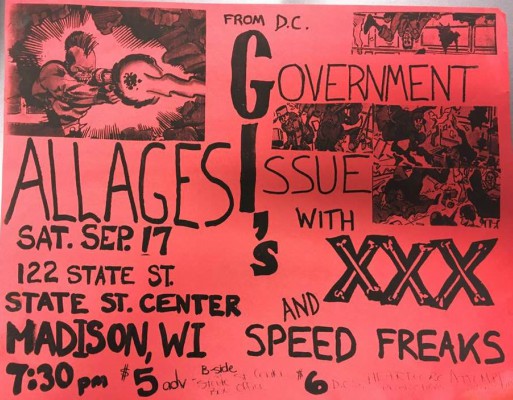 FROM D.C.
GOVERNMENT
ISSUE
GI's
ALL AGES
WITH
XXX
SAT. SEP. 17
122 STATE ST.
STATE ST. CENTER
AND
MADISON, WI
SPEED FREAKS
7:30 pm $5 adv B-side $6